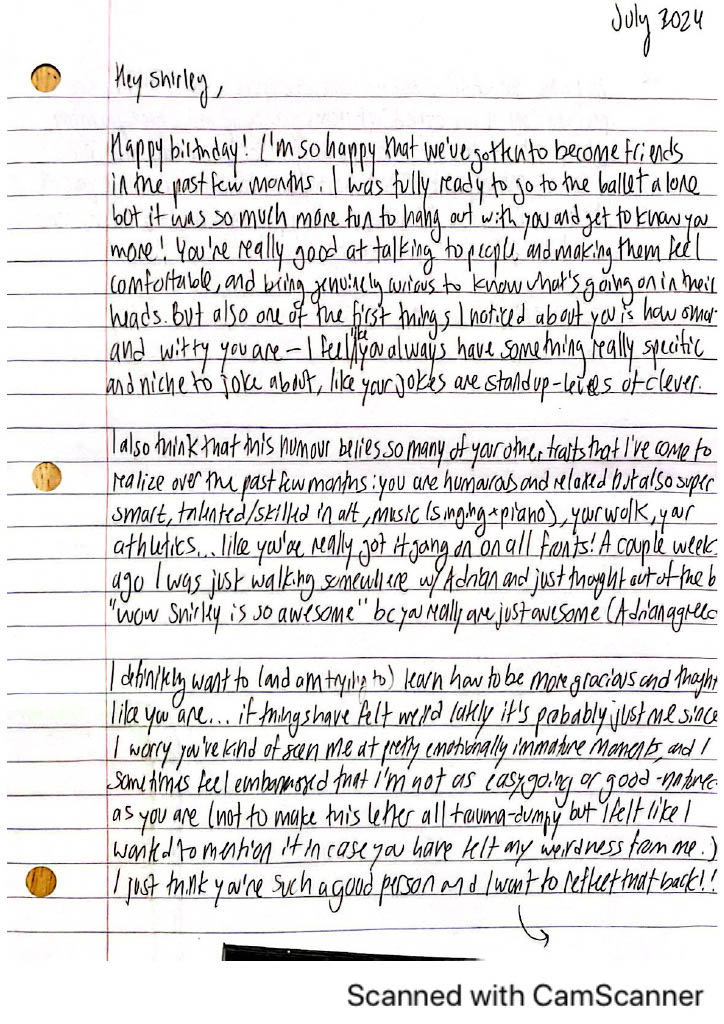 July 2024
Hey Shirley,
Happy birthday! I'm so happy that we've gotten to become friends
in the past few months. I was fully ready to go to the ballet alone
but it was so much more fun to hang out with you and get to know you
more! You're really good at talking to people, and making them feel
comfortable, and being genuinely curious to know what's going on in their
heads. But also one of the first things I noticed about you is how smar
and witty you are – I feel like you always have something really specific
and niche to joke about, like your jokes are standup-levels of clever.
I also think that this humour belies so many of your other traits that I've come to
realize over the past few months: you are humorous and relaxed but also super
smart, talented/skilled in art, music (singing + piano), your work, your
athletics... like you've really got it going on on all fronts! A couple week
ago I was just walking somewhere w/ Adrian and just thought out of the b
"wow Shirley is so awesome" bc you really are just awesome (Adrian agreed
I definitely want to (and am trying to) learn how to be more gracious and though
like you are... if things have felt weird lately it's probably just me since
I worry you've kind of seen me at pretty emotionally immature moments, and I
sometimes feel embarrassed that I'm not as easygoing or good-nature
as you are (not to make this letter all trauma-dumpy but I felt like I
wanted to mention it in case you have felt any weirdness from me.)
I just think you're such a good person and I want to reflect that back!!
Scanned with CamScanner